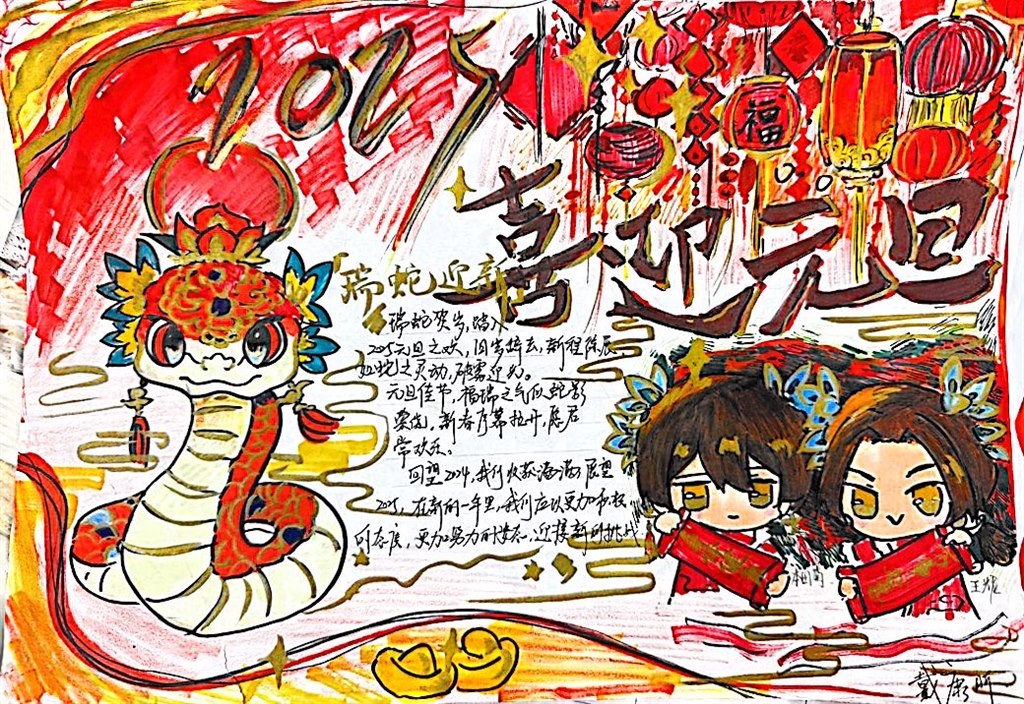 2025
福
喜迎元旦
瑞蛇迎新
瑞蛇贺岁,踏入
2025元旦之欢,旧岁辞去,新程徐展,
如蛇之灵动,破雾迎光。
元旦佳节,福瑞之气似蛇影
萦绕,新春序幕拉开,愿君
常欢乐。
回望2024,我们收获满满,展望
2025,在新的一年里,我们应以更加积极
的态度,更加努力的姿态,迎接新的挑战
本田菊
王耀
戴康昕